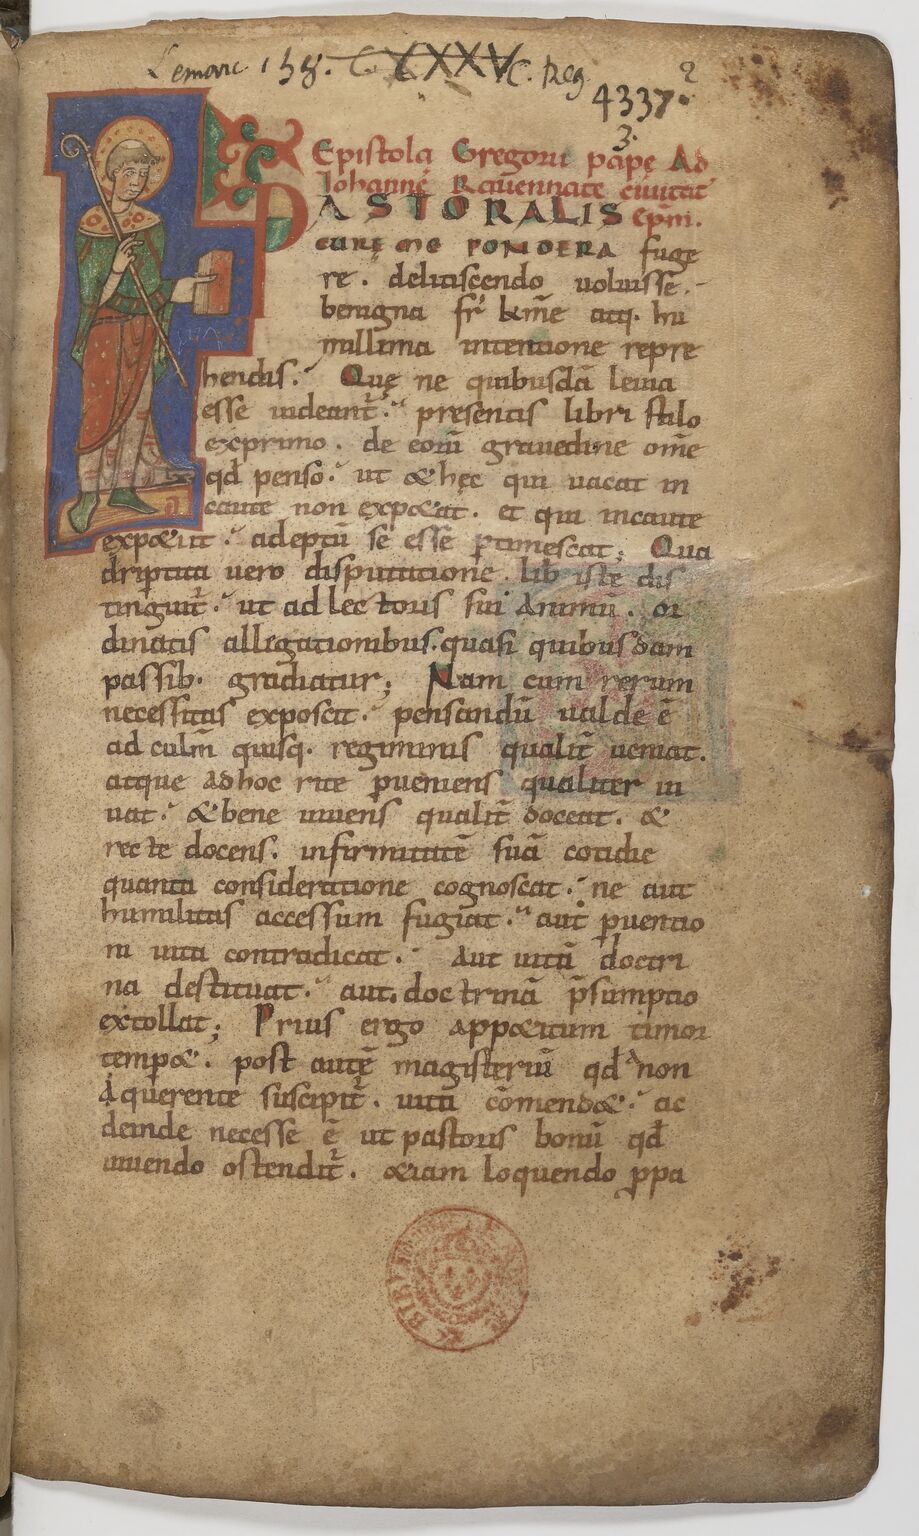 Lemarc 158. CXXXV C. Reg. 2
4337.
3.
Epistola Gregorii papę Ad
Iohannē Rauennatē ciuitat̄
PASTORALIS ep̄m.
CURĘ ME PONDERA fuge
re. delitiscendo uoluisse.
benigna fr̄ km̄e atq. hu
millima intentione repre
hendis. Quę ne quibusdā leuia
esse uideant̄. presentis libri stilo
exprimo. de eorū grauedine om̄e
qd penso. ut & hęc qui uacat in
caute non exp&at. et qui incaute
exp&iit. adeptū se esse ptimescat; Qua
dripertita uero disputatione. lib iste dis
tinguit̄. ut ad lectoris sui animū. or
dinatis allegationibus. quasi quibusdam
passib. gradiatur; Nam cum rerum
necessitas exposcit. pensandū ualde ē
ad culm̄ quisq. regiminis qualit̄ ueniat.
atque ad hoc rite pueniens qualiter ui
uat. & bene uiuens qualit̄ doceat. &
recte docens. infirmitatē suā cotidie
quanta consideratione cognoscat. ne aut
humilitas accessum fugiat. aut puentio
ni uita contradicat. Aut uitā doctri
na destituat. aut doctrinā p̄sumptio
extollat; Prius ergo app&itum timor
temp&. post autē magisteriū qd non
a querente suscipit̄. uita cōmend&. ac
deinde necesse ē ut pastoris bonū qd
uiuendo ostendit̄. &iam loquendo ppa